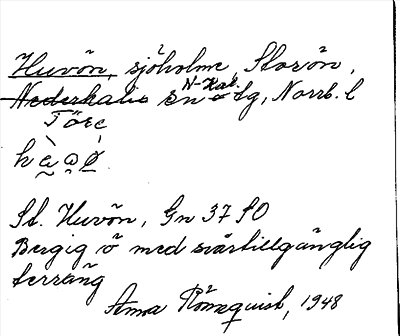 Huvön, sjöholme, Storön,
Nederkalix sn o tg, Norrb. l
N-Kal.
Töre
St. Huvön, Gn 37 SO
Bergig ö med svårtillgänglig
terräng
Anna Rönnquist, 1948